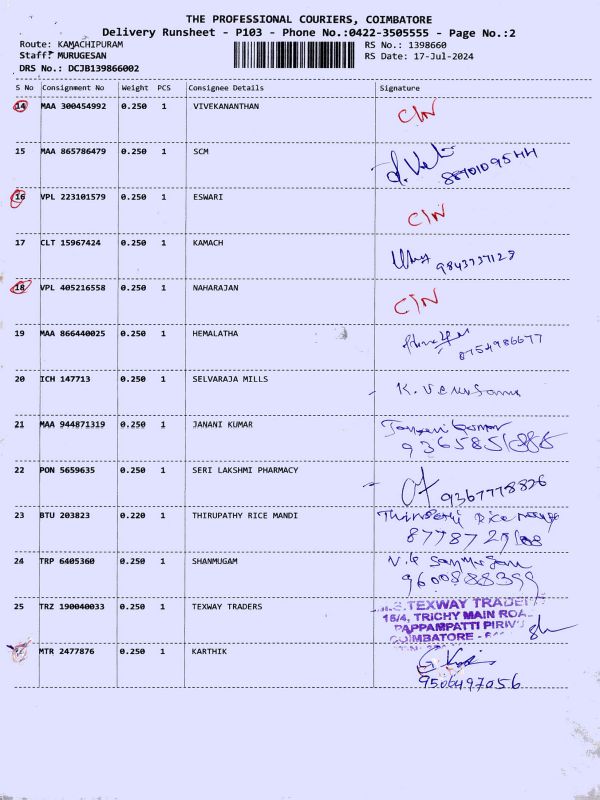 THE PROFESSIONAL COURIERS, COIMBATORE
Delivery Runsheet - P103 - Phone No.:0422-3505555 - Page No.:2
Route: KAMACHIPURAM RS No.: 1398660
Staff: MURUGESAN RS Date: 17-Jul-2024
DRS No.: DCJB139866002
S No Consignment No Weight PCS Consignee Details Signature
14 MAA 300454992 0.250 1 VIVEKANANTHAN C/N
15 MAA 865786479 0.250 1 SCM
16 VPL 223101579 0.250 1 ESWARI C/N
17 CLT 15967424 0.250 1 KAMACH
9843737123
18 VPL 405216558 0.250 1 NAHARAJAN C/N
19 MAA 866440025 0.250 1 HEMALATHA
8754986677
20 ICH 147713 0.250 1 SELVARAJA MILLS K.
21 MAA 944871319 0.250 1 JANANI KUMAR Janani kumar
22 PON 5659635 0.250 1 SERI LAKSHMI PHARMACY
9367778826
23 BTU 203823 0.220 1 THIRUPATHY RICE MANDI Rice
24 TRP 6405360 0.250 1 SHANMUGAM
9600588399
25 TRZ 190040033 0.250 1 TEXWAY TRADERS TEXWAY
15/4, TRICHY MAIN
PAPPAMPATTI
COIMBATORE -
MTR 2477876 0.250 1 KARTHIK
9506497056